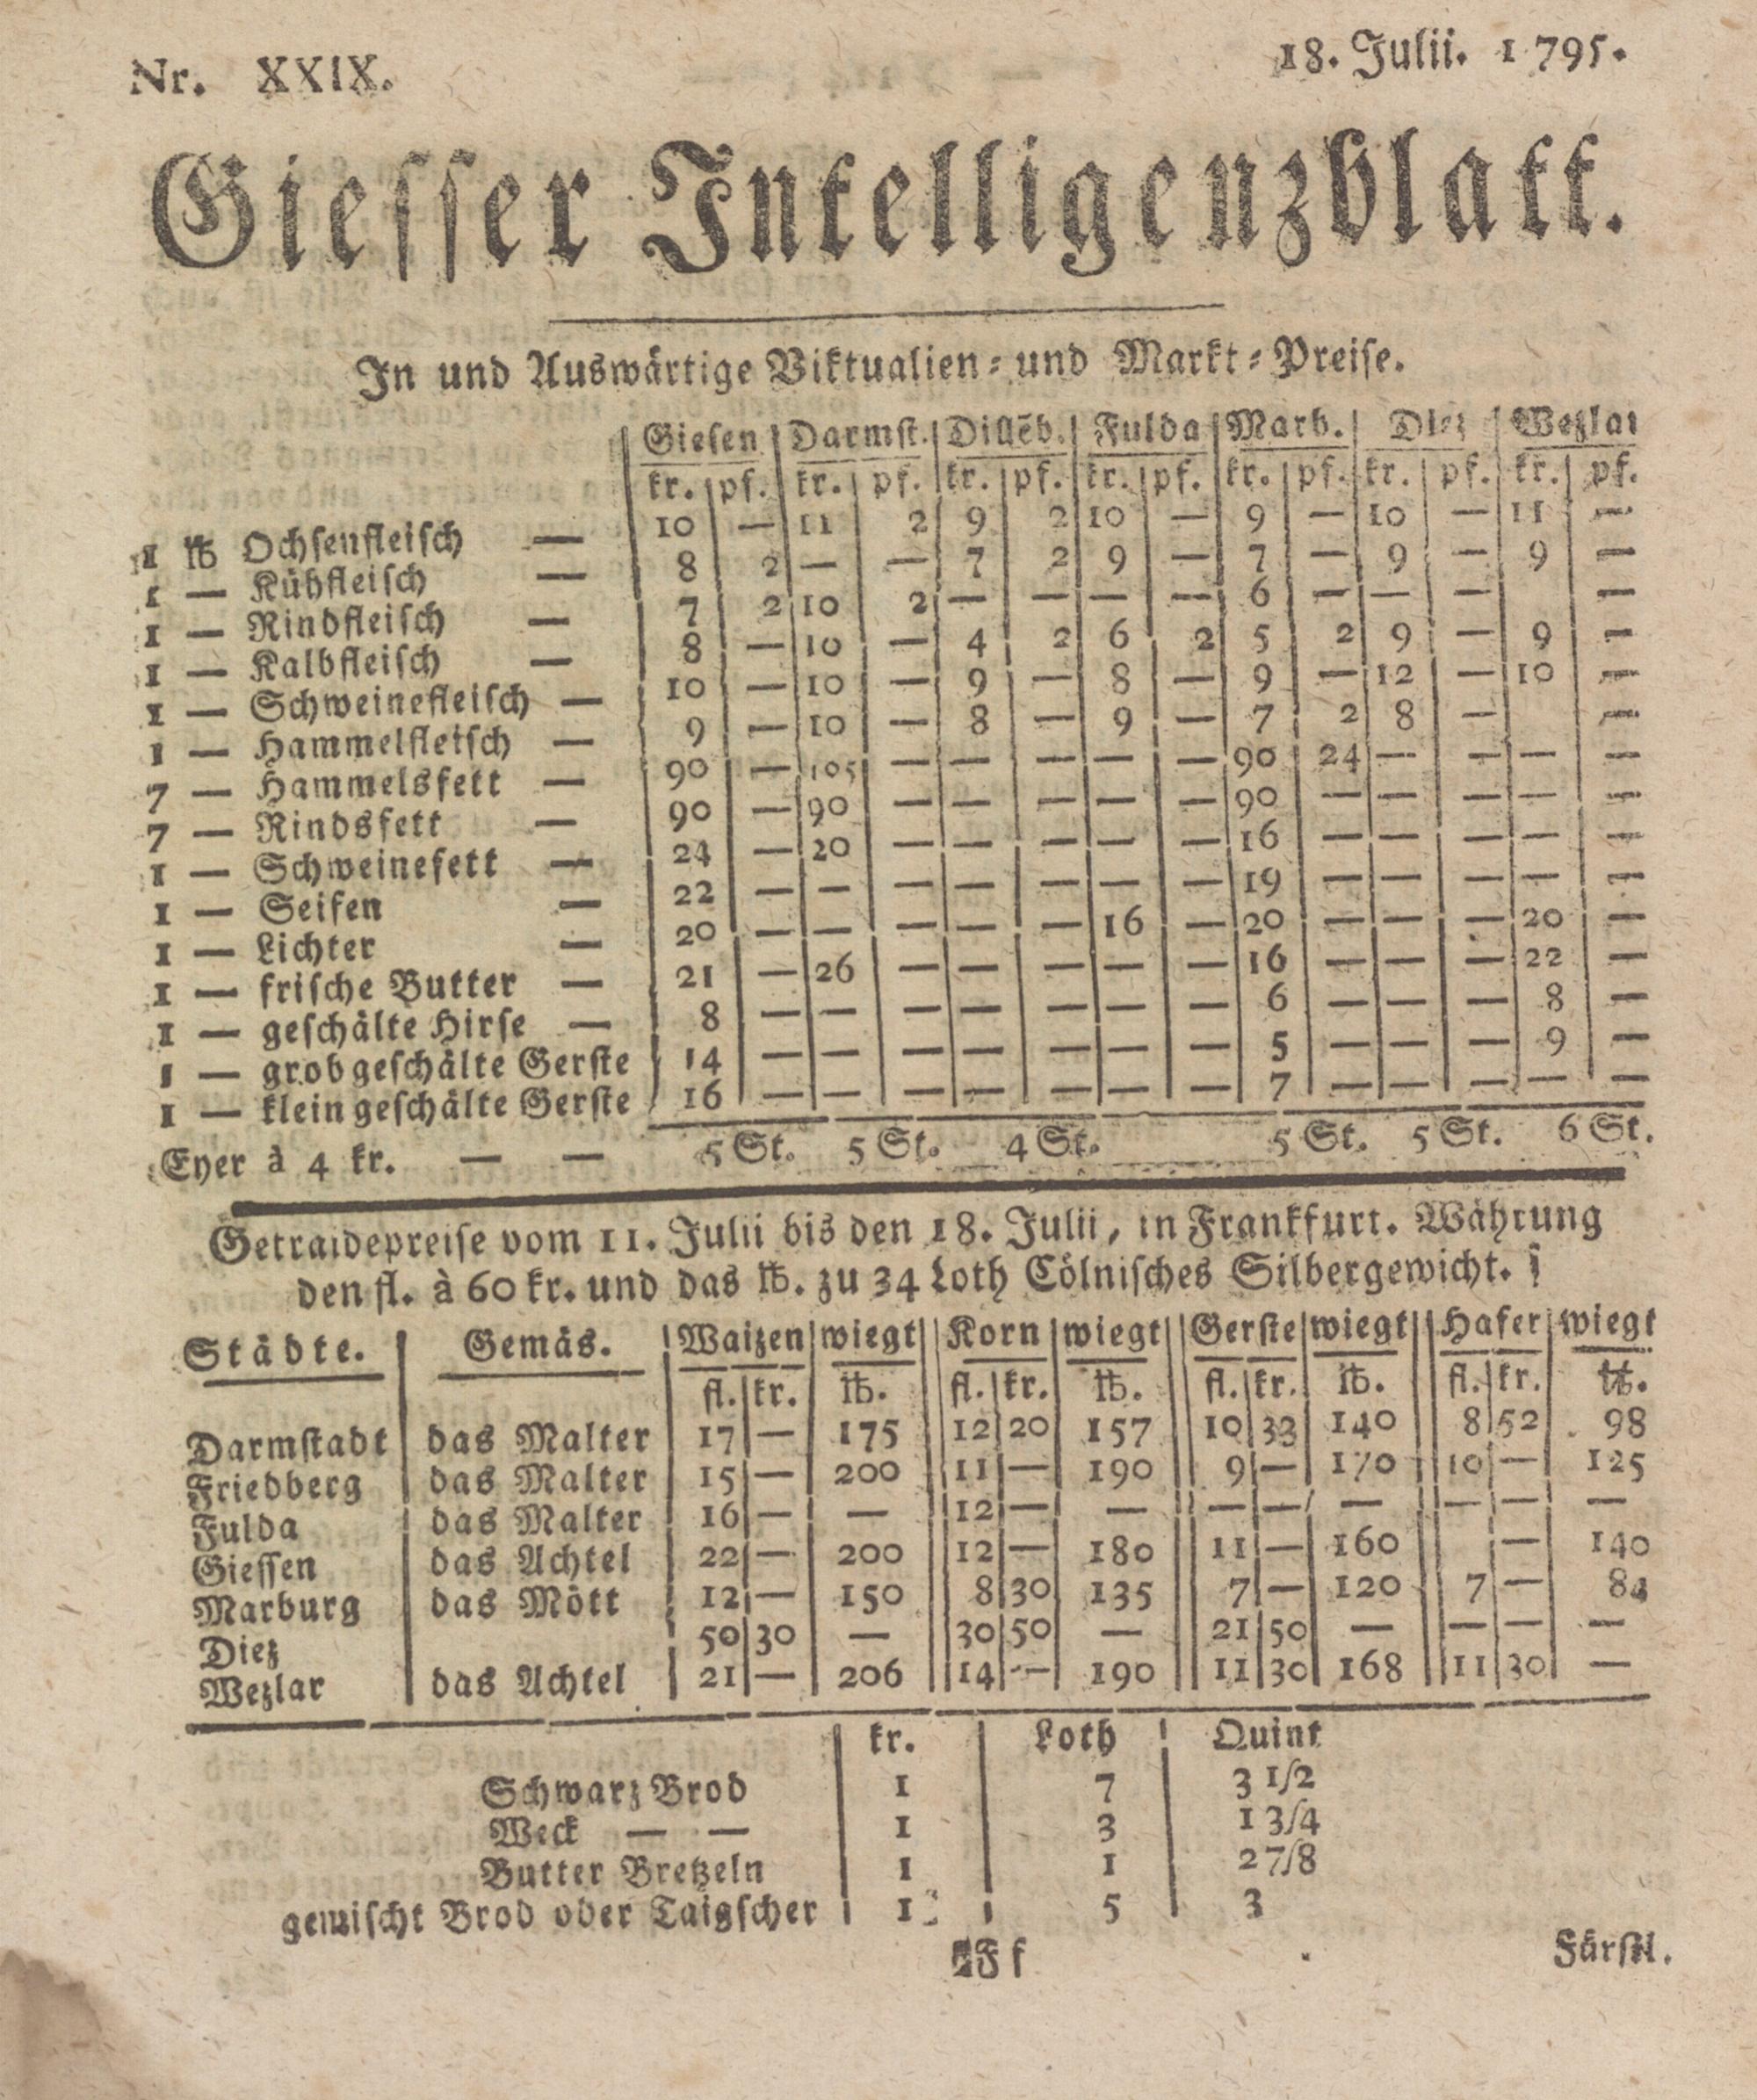 Nr. XXIX. 18. Julii. 1795.
Giesser Intelligenzblatt.
In und Auswärtige Viktualien- und Markt-Preise.
Giesen Darmst. Dillēb. Fulda Marb. Diez Wezlar
kr. pf. kr. pf. kr. pf. kr. pf. kr. pf. kr. pf. kr. pf.
1 ℔ Ochsenfleisch — 10 — 11 2 9 2 10 — 9 — 10 — 11 —
1 — Kühfleisch — 8 2 — — 7 2 9 — 7 — 9 — 9 —
1 — Rindfleisch — 7 2 10 2 — — — — 6 — — — —
1 — Kalbfleisch — 8 — 10 — 4 2 6 2 5 2 9 — 9 —
1 — Schweinefleisch — 10 — 10 — 9 — 8 — 9 — 12 — 10 —
1 — Hammelfleisch — 9 — 10 — 8 — 9 — 7 2 8 — —
7 — Hammelsfett — 90 — 105 — — — — — 90 24 — — — —
7 — Rindsfett — 90 — 90 — — — — — 90 — — — — —
1 — Schweinefett — 24 — 20 — — — — — 16 — — — — —
1 — Seifen — 22 — — — — — — — 19 — — — — —
1 — Lichter — 20 — — — — — 16 — 20 — — — 20 —
1 — frische Butter — 21 — 26 — — — — — 16 — — — 22 —
1 — geschälte Hirse — 8 — — — — — — — 6 — — — 8 —
1 — grob geschälte Gerste 14 — — — — — — — 5 — — — 9 —
1 — klein geschälte Gerste 16 — — — — — — — 7 — — — — —
Eyer à 4 kr. — — 5 St. 5 St. 4 St. 5 St. 5 St. 6 St.
Getraidepreise vom 11. Julii bis den 18. Julii, in Frankfurt. Währung
den fl. à 60 kr. und das ℔. zu 34 Loth Cölnisches Silbergewicht.
Städte. Gemäs. Waizen wiegt Korn wiegt Gerste wiegt Hafer wiegt
fl. kr. ℔. fl. kr. ℔. fl. kr. ℔. fl. kr. ℔.
Darmstadt das Malter 17 — 175 12 20 157 10 33 140 8 52 98
Friedberg das Malter 15 — 200 11 — 190 9 — 170 10 — 125
Fulda das Malter 16 — — 12 — — — — — — — —
Giessen das Achtel 22 — 200 12 — 180 11 — 160 — 140
Marburg das Mött 12 — 150 8 30 135 7 — 120 7 — 84
Diez 50 30 — 30 50 — 21 50 — — — —
Wezlar das Achtel 21 — 206 14 — 190 11 30 168 11 30 —
kr. Loth Quint
Schwarz Brod 1 7 3 1/2
Weck — — 1 3 1 3/4
Butter Bretzeln 1 1 2 7/8
gemischt Brod oder Taigscher 1 5 3
F f Fürstl.